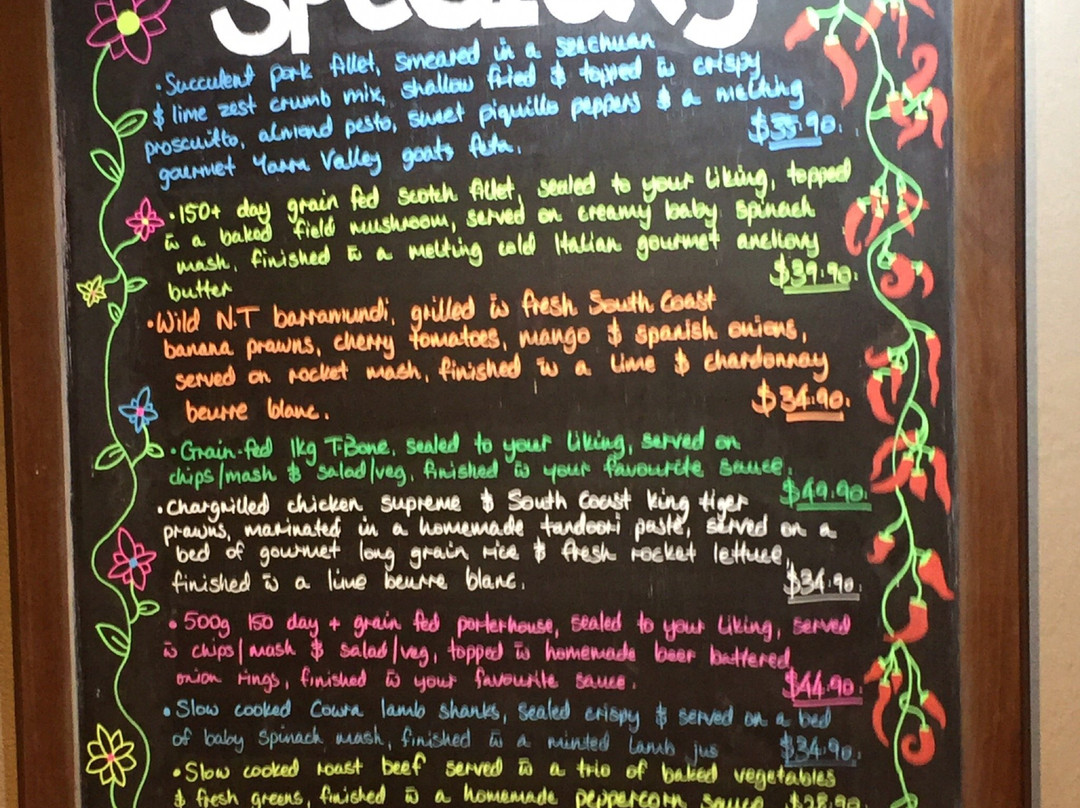 SPECIALS
• Succulent pork fillet, smeared in a szechuan
$ lime zest crumb mix, shallow fried $ topped w̄ crispy
prosciutto, almond pesto, sweet piquillo peppers $ a melting
gourmet Yarra Valley goats feta. $35.90.
• 150+ day grain fed scotch fillet, sealed to your liking, topped
w̄ a baked field mushroom, served on creamy baby spinach
mash, finished w̄ a melting cold Italian gourmet anchovy
butter $39.90.
• Wild N.T barramundi, grilled w̄ fresh South Coast
banana prawns, cherry tomatoes, mango $ spanish onions,
served on rocket mash, finished w̄ a lime $ chardonnay
beurre blanc. $34.90.
• Grain-fed 1kg T-Bone, sealed to your liking, served on
chips/mash $ salad/veg, finished w̄ your favourite sauce. $49.90.
• Chargrilled chicken supreme $ South Coast king tiger
prawns, marinated in a homemade tandoori paste, served on a
bed of gourmet long grain rice $ fresh rocket lettuce,
finished w̄ a lime beurre blanc. $34.90.
• 500g 150 day + grain fed porterhouse, sealed to your liking, served
w̄ chips/mash $ salad/veg, topped w̄ homemade beer battered
onion rings, finished w̄ your favourite sauce. $44.90.
• Slow cooked Cowra lamb shanks, sealed crispy $ served on a bed
of baby spinach mash, finished w̄ a minted lamb jus $34.90.
• Slow cooked roast beef served w̄ a trio of baked vegetables
$ fresh greens, finished w̄ a homemade peppercorn sauce $28.90